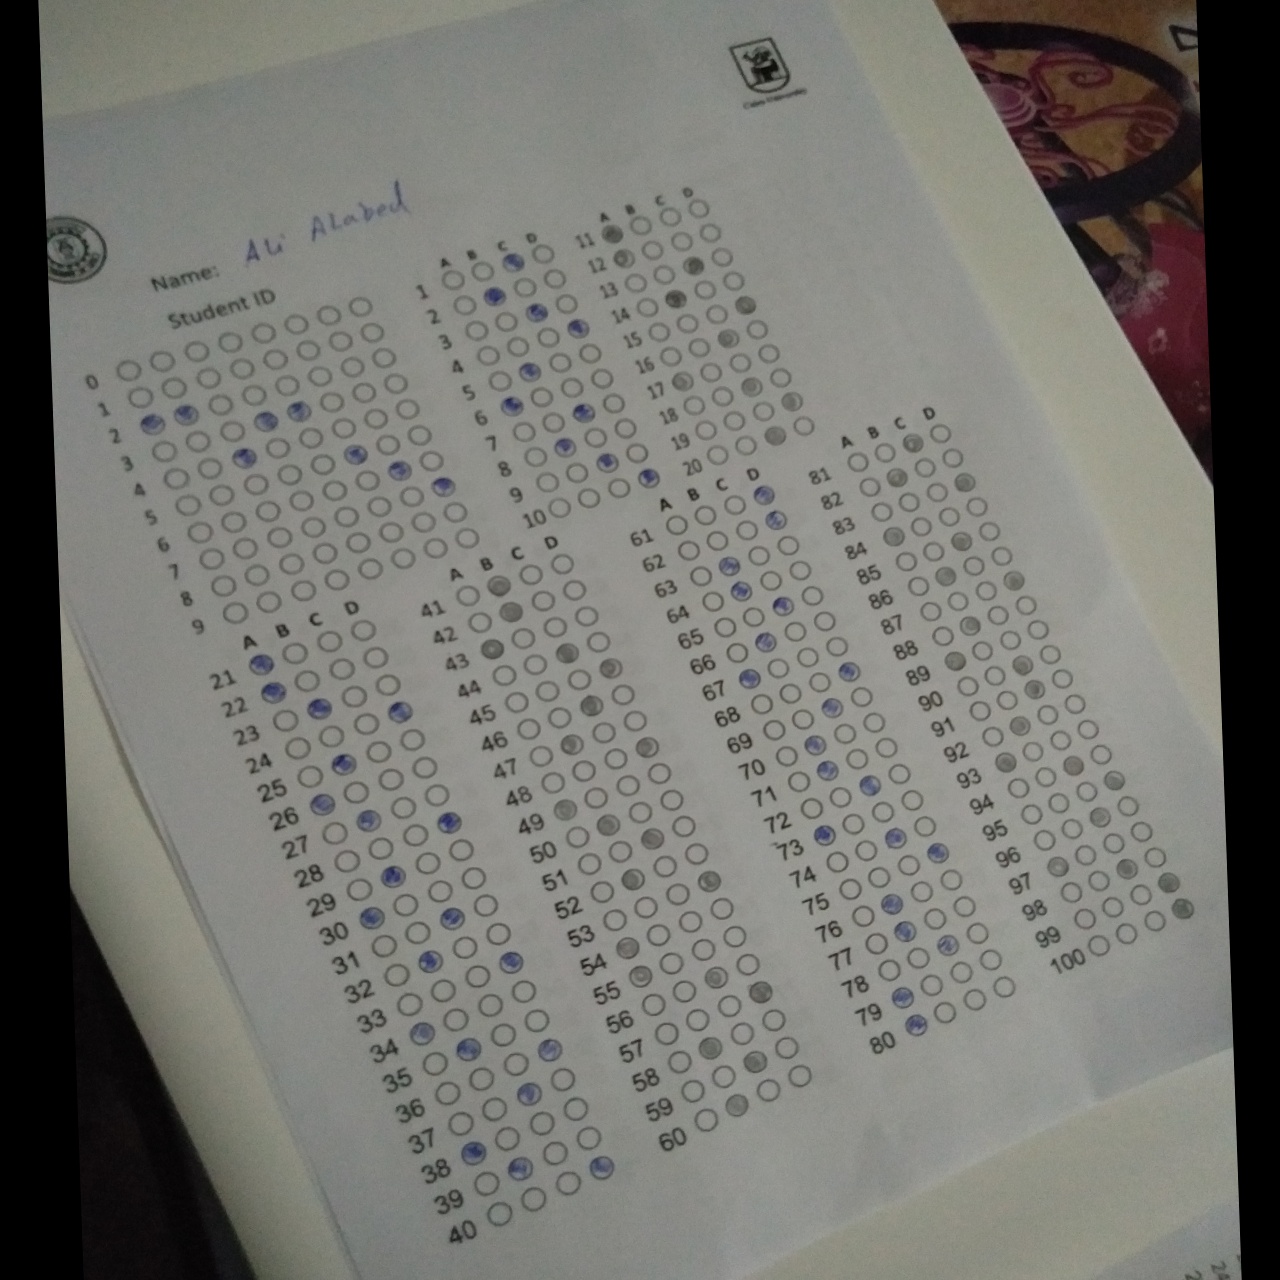 Name: Ali Alabed
Student ID
0
1
2
3
4
5
6
7
8
9
A B C D
1
2
3
4
5
6
7
8
9
10
A B C D
11
12
13
14
15
16
17
18
19
20
A B C D
21
22
23
24
25
26
27
28
29
30
31
32
33
34
35
36
37
38
39
40
A B C D
41
42
43
44
45
46
47
48
49
50
51
52
53
54
55
56
57
58
59
60
A B C D
61
62
63
64
65
66
67
68
69
70
71
72
73
74
75
76
77
78
79
80
A B C D
81
82
83
84
85
86
87
88
89
90
91
92
93
94
95
96
97
98
99
100